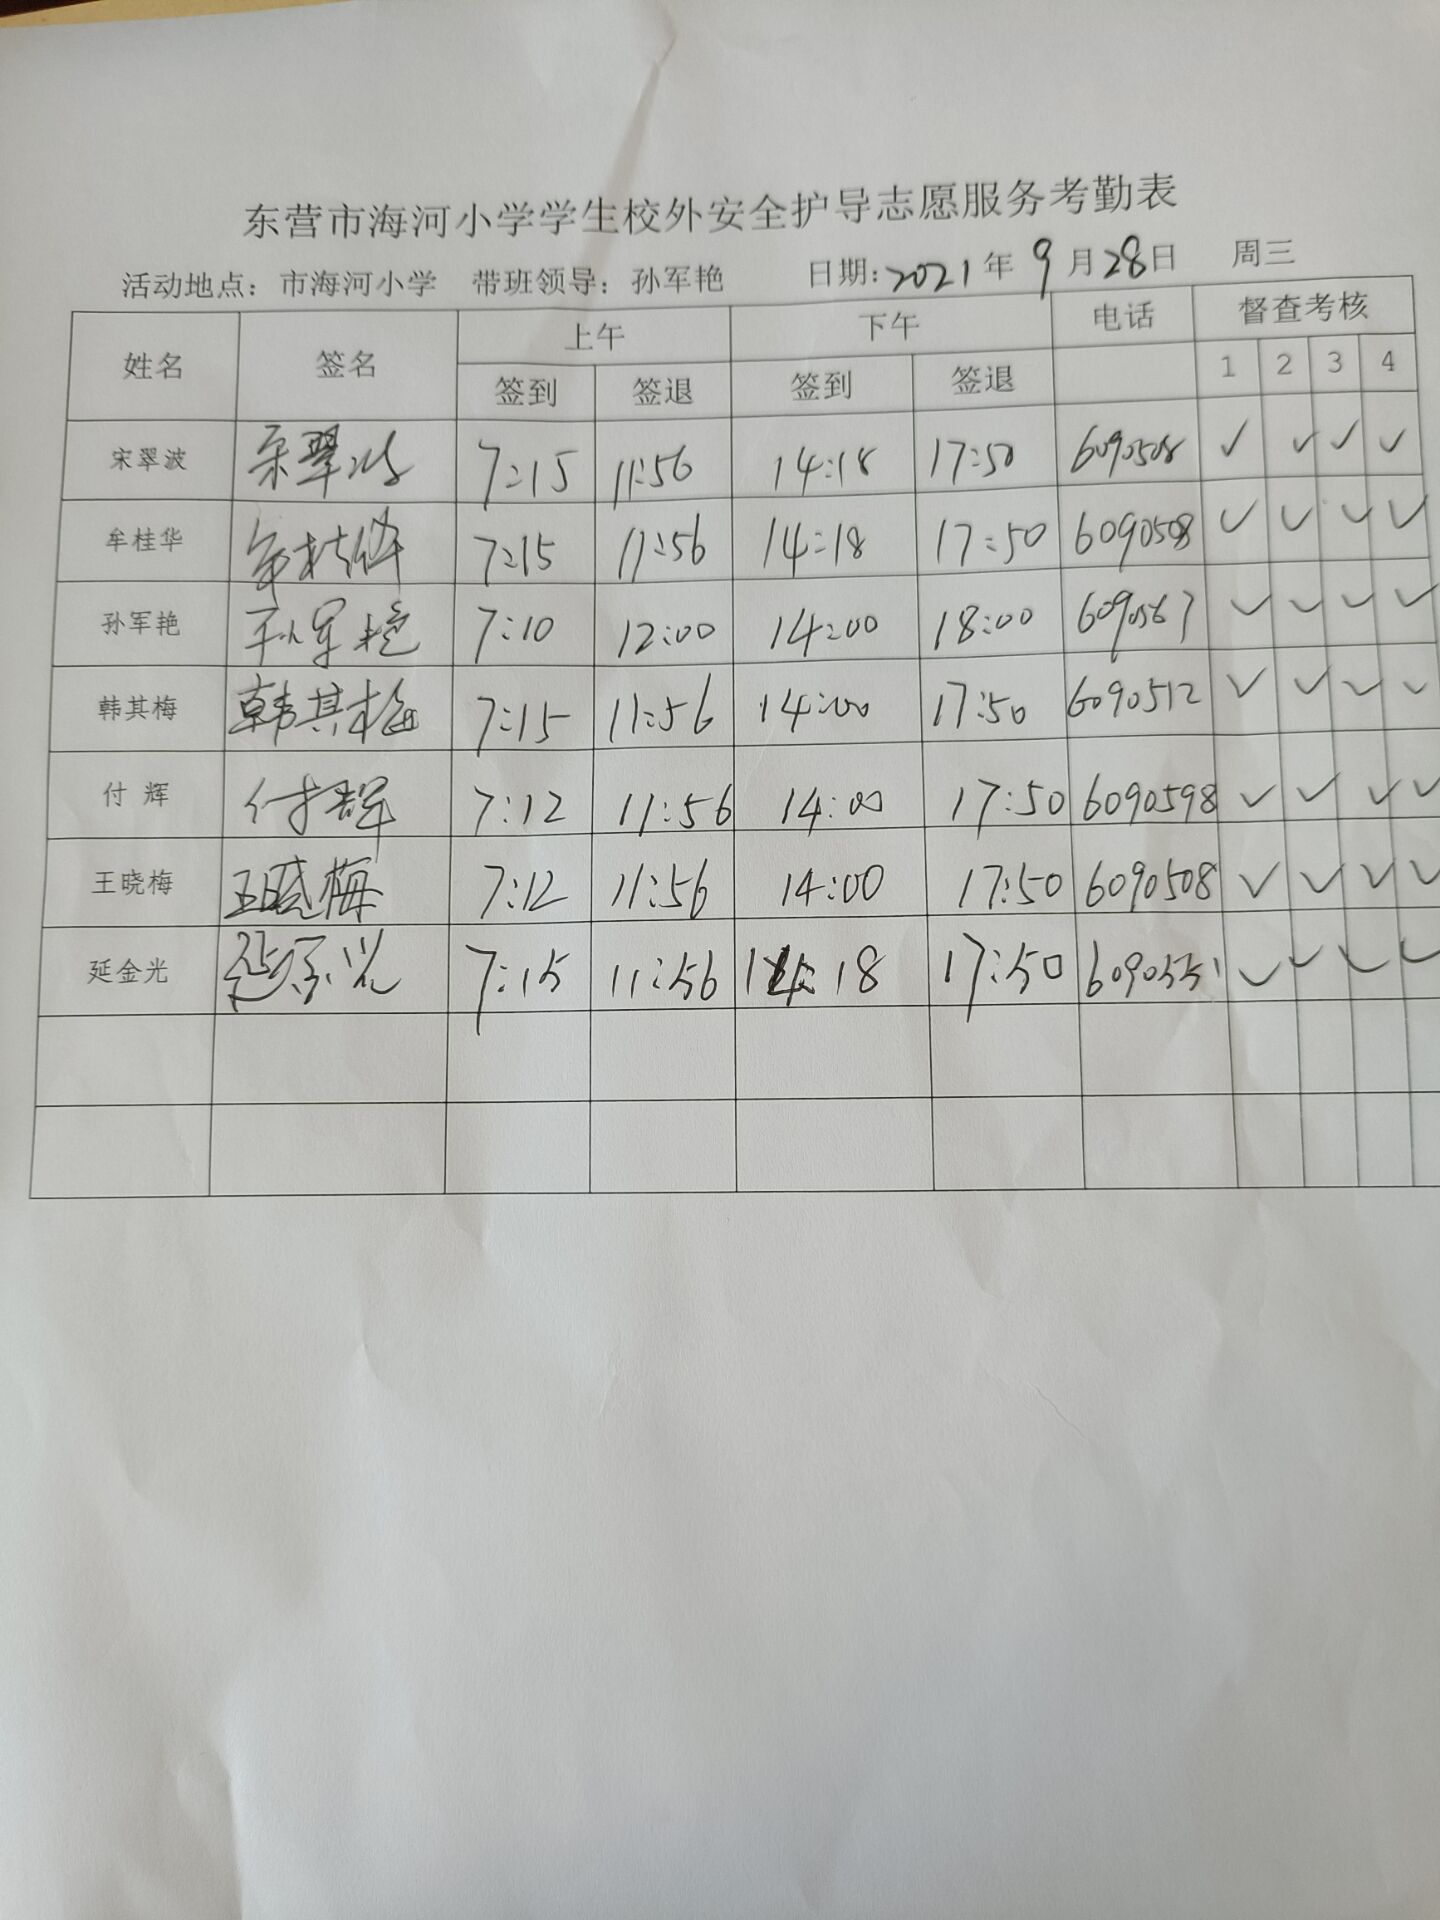 东营市海河小学学生校外安全护导志愿服务考勤表
活动地点：市海河小学 带班领导：孙军艳 日期：2021年9月28日 周三
姓名 签名 上午 下午 电话 督查考核
签到 签退 签到 签退 1 2 3 4
宋翠波 宋翠波 7:15 11:56 14:18 17:50 6090508 ✓ ✓ ✓ ✓
牟桂华 牟桂华 7:15 11:56 14:18 17:50 6090508 ✓ ✓ ✓ ✓
孙军艳 孙军艳 7:10 12:00 14:00 18:00 6090567 ✓ ✓ ✓ ✓
韩其梅 韩其梅 7:15 11:56 14:00 17:50 6090512 ✓ ✓ ✓ ✓
付 辉 付辉 7:12 11:56 14:00 17:50 6090598 ✓ ✓ ✓ ✓
王晓梅 王晓梅 7:12 11:56 14:00 17:50 6090508 ✓ ✓ ✓ ✓
延金光 延金光 7:15 11:56 14:18 17:50 6090551 ✓ ✓ ✓ ✓